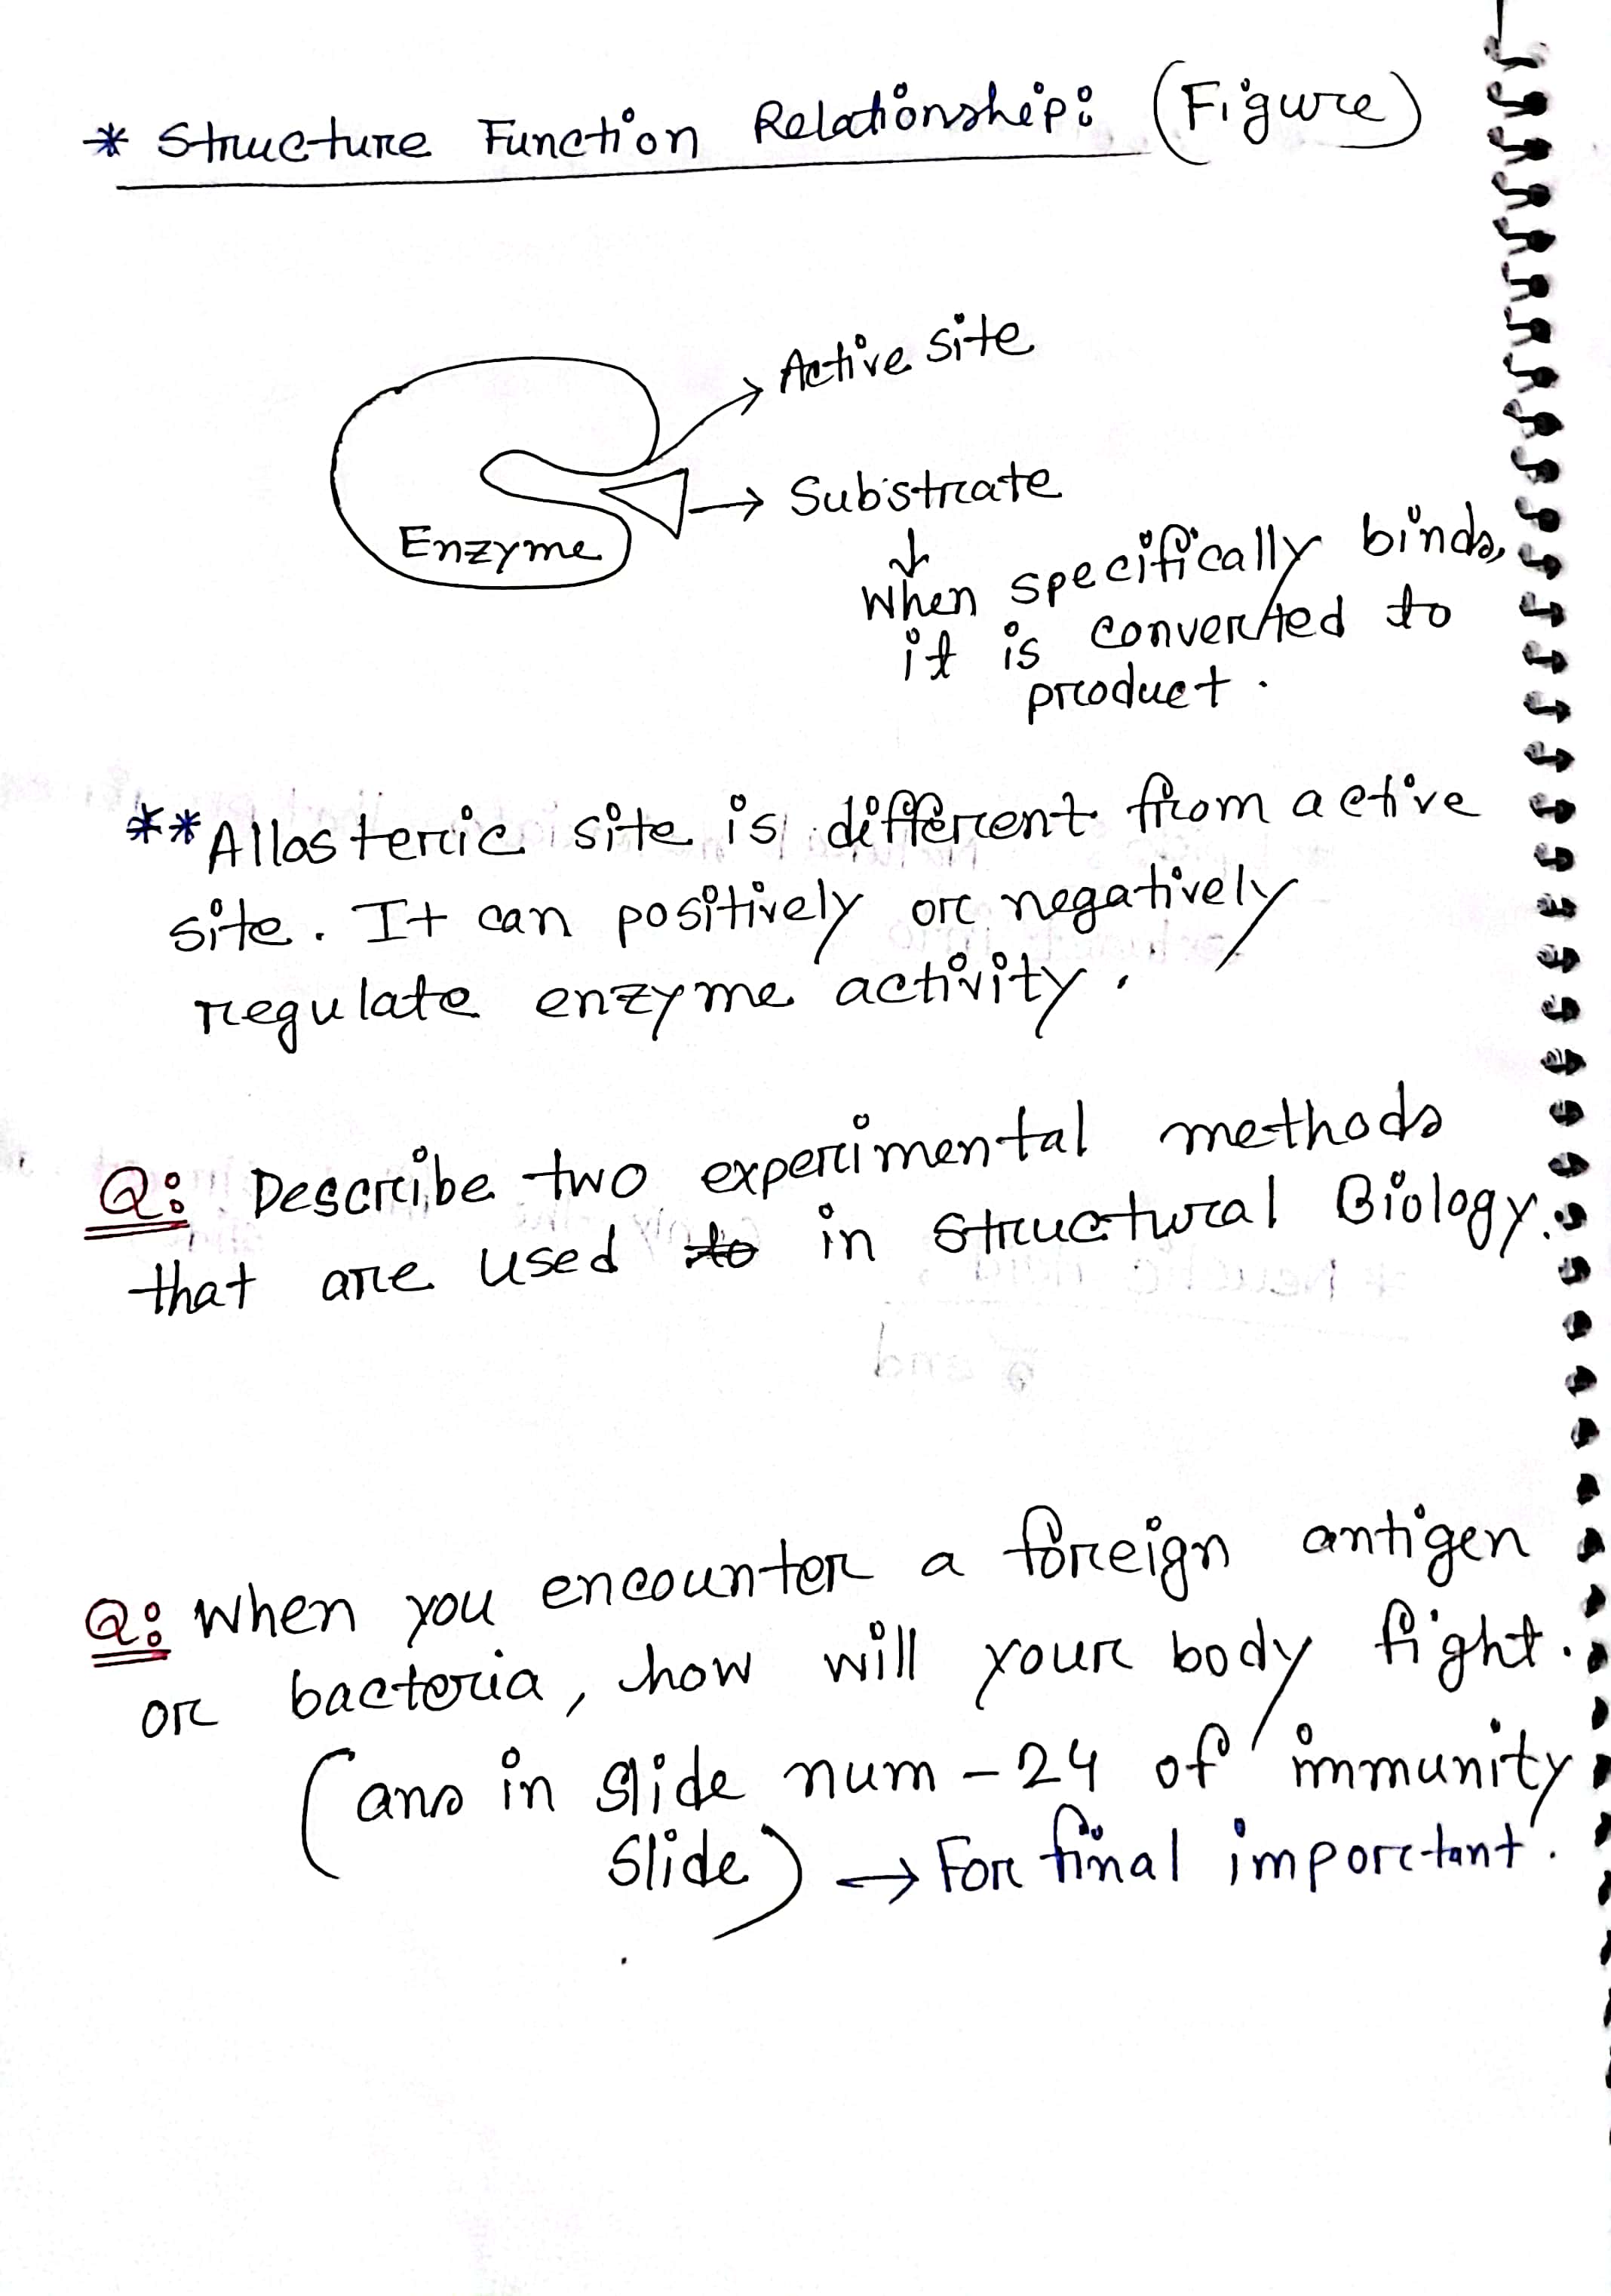 * Structure Function Relationship: (Figure)
Active site
Substrate
Enzyme
When specifically binds,
it is converted to
product.
** Allosteric site is different from active
site. It can positively or negatively
regulate enzyme activity.
Q: Describe two experimental methods
that are used to in structural Biology.
Q: When you encounter a foreign antigen
or bacteria, how will your body fight.
(ans in slide num - 24 of immunity
slide) → For final important.